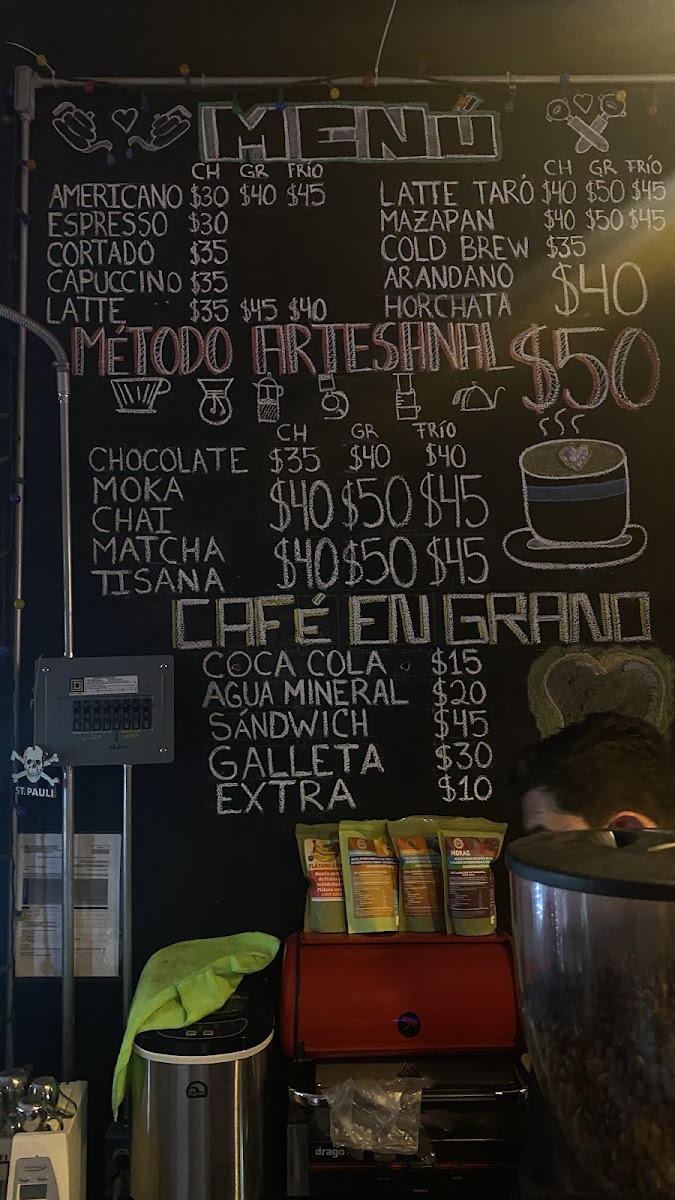 MENÚ
CH GR FRÍO
AMERICANO $30 $40 $45
ESPRESSO $30
CORTADO $35
CAPUCCINO $35
LATTE $35 $45 $40
CH GR FRÍO
LATTE TARÓ $40 $50 $45
MAZAPAN $40 $50 $45
COLD BREW $35
ARANDANO
HORCHATA $40
MÉTODO ARTESANAL $50
CH GR FRÍO
CHOCOLATE $35 $40 $40
MOKA
CHAI $40 $50 $45
MATCHA
TISANA $40 $50 $45
CAFÉ EN GRANO
COCA COLA $15
AGUA MINERAL $20
SÁNDWICH $45
GALLETA $30
EXTRA $10
ST. PAULI
MORAS
drago